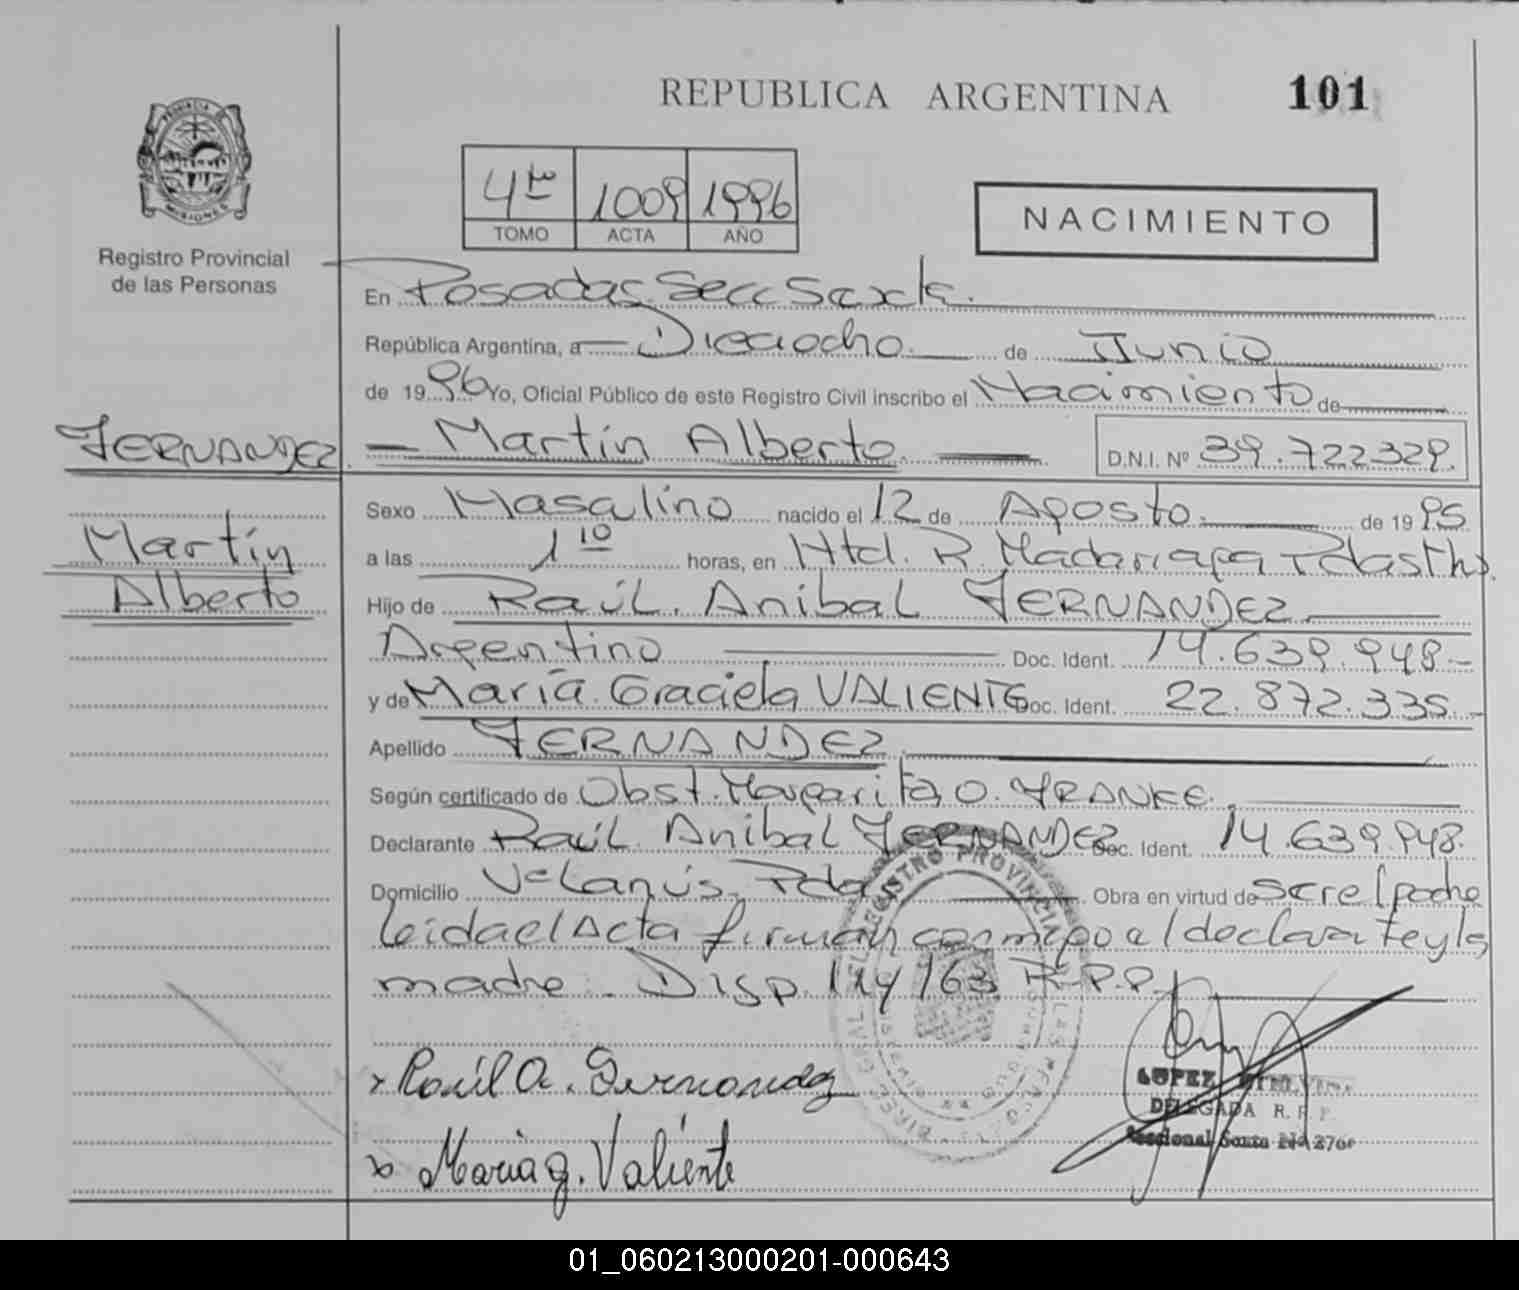 REPUBLICA ARGENTINA 101
4to 1009 1996
TOMO ACTA AÑO
NACIMIENTO
PROVINCIA DE MISIONES
Registro Provincial
de las Personas
En Posadas Secc Sexta.
República Argentina, a Dieciocho de Junio
de 1996 Yo, Oficial Público de este Registro Civil inscribo el Nacimiento de
FERNANDEZ Martín Alberto D.N.I. Nº 39.722329.
Sexo Masculino nacido el 12 de Agosto de 1995
Martín
a las 1 10 horas, en Htal. R. Madariaga Pdas
Alberto
Hijo de Raúl Anibal FERNANDEZ
Argentino Doc. Ident. 14.639.948.-
y de María Graciela VALIENTE Doc. Ident. 22.872.335.-
Apellido FERNANDEZ
Según certificado de Obst. Margarita O. FRANKE.
Declarante Raúl Anibal FERNANDEZ Doc. Ident. 14.639.948.
Domicilio Lanús. Pdas Obra en virtud de ser el padre
leida el Acta firman conmigo el declarante y la
madre. Disp. 114/63 R.P.P.
Raúl A. Fernandez
Maria g. Valiente
LOPEZ
DELEGADA R. P. P.
Seccional Sexta
01_060213000201-000643